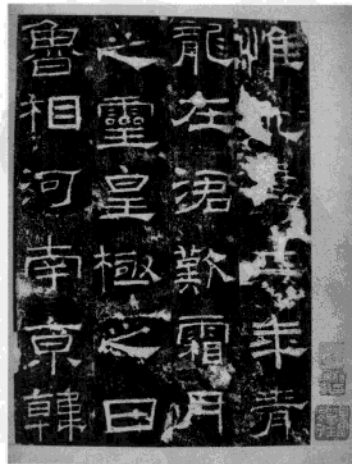 惟年青
龍在涒歎霜月
之靈皇極之日
魯相河南京韓